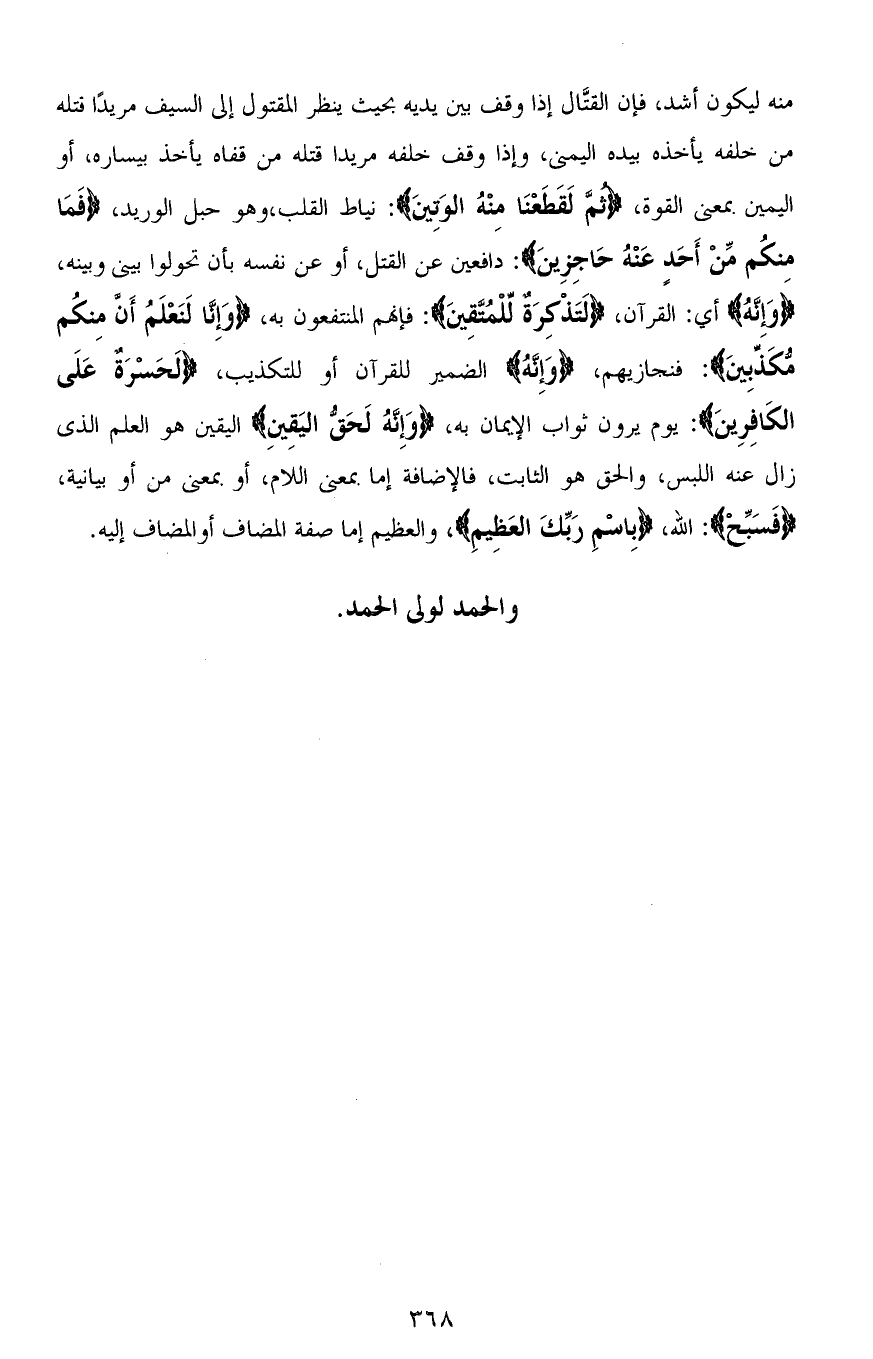 منه ليكون أشد، فإن القتَّال إذا وقف بين يديه بحيث ينظر المقتول إلى السيف مريدًا قتله
من خلفه يأخذه بيده اليمنى، وإذا وقف خلفه مريدا قتله من قفاه يأخذ بيساره، أو
اليمين بمعنى القوة، ﴿ثُمَّ لَقَطَعْنَا مِنْهُ الوَتِينَ﴾: نياط القلب،وهو حبل الوريد، ﴿فَمَا
مِنكُم مِّنْ أَحَدٍ عَنْهُ حَاجِزِينَ﴾: دافعين عن القتل، أو عن نفسه بأن تحولوا بيني وبينه،
﴿وَإِنَّهُ﴾ أي: القرآن، ﴿لَتَذْكِرَةٌ لِّلْمُتَّقِينَ﴾: فإنهم المنتفعون به، ﴿وَإِنَّا لَنَعْلَمُ أَنَّ مِنكُم
مُّكَذِّبِينَ﴾: فنجازيهم، ﴿وَإِنَّهُ﴾ الضمير للقرآن أو للتكذيب، ﴿لَحَسْرَةٌ عَلَى
الكَافِرِينَ﴾: يوم يرون ثواب الإيمان به، ﴿وَإِنَّهُ لَحَقُّ اليَقِينِ﴾ اليقين هو العلم الذى
زال عنه اللبس، والحق هو الثابت، فالإضافة إما بمعنى اللام، أو بمعنى من أو بيانية،
﴿فَسَبِّحْ﴾: الله، ﴿بِاسْمِ رَبِّكَ العَظِيمِ﴾، والعظيم إما صفة المضاف أوالمضاف إليه.
والحمد لولى الحمد.
٣٦٨